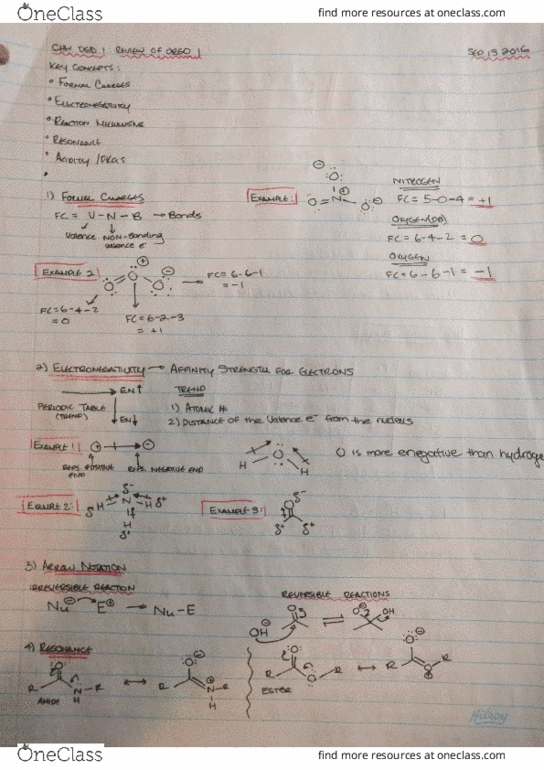 OneClass
find more resources at oneclass.com
CHM DGD 1 REVIEW OF ORGO 1
SEP 13 2016
KEY CONCEPTS:
• FORMAL CHARGES
• ELECTRONEGATIVITY
• REACTION MECHANISMS
• RESONANCE
• ACIDITY / PKAS
•
1) FORMAL CHARGES
FC = V - N - B → Bonds
Valence NON-Bonding
valence e⁻
EXAMPLE:
O = N - O
NITROGEN
FC = 5-0-4 = +1
OXYGEN (DB)
FC = 6-4-2 = 0
OXYGEN
FC = 6-6-1 = -1
EXAMPLE 2
O O O
FC = 6-6-1
= -1
FC = 6-4-2
= 0
FC = 6-2-3
= +1
2) ELECTRONEGATIVITY → AFFINITY STRENGTH FOR ELECTRONS
EN↑
PERIODIC TABLE
(TREND)
EN↓
TREND
1) ATOMIC #
2) DISTANCE OF THE Valence e⁻ from the nucleus
EXAMPLE 1
+ -
REPS. POSITIVE END
REPS. NEGATIVE END
H O H
O is more enegative than hydroge
EXAMPLE 2:
δ⁻
δ⁺ H N H δ⁺
H
δ⁺
EXAMPLE 3:
δ⁻
O
δ⁺ δ⁺
3) ARROW NOTATION
IRREVERSIBLE REACTION
Nu⁻ E⁺ → Nu-E
REVERSIBLE REACTIONS
OH⁻ O ⇌ O⁻ OH
4) RESONANCE
O
R N-R
H
AMIDE
↔
O⁻
R N-R
H
O
R O R
ESTER
↔
O⁻
R O R
Hilroy
OneClass
find more resources at oneclass.com